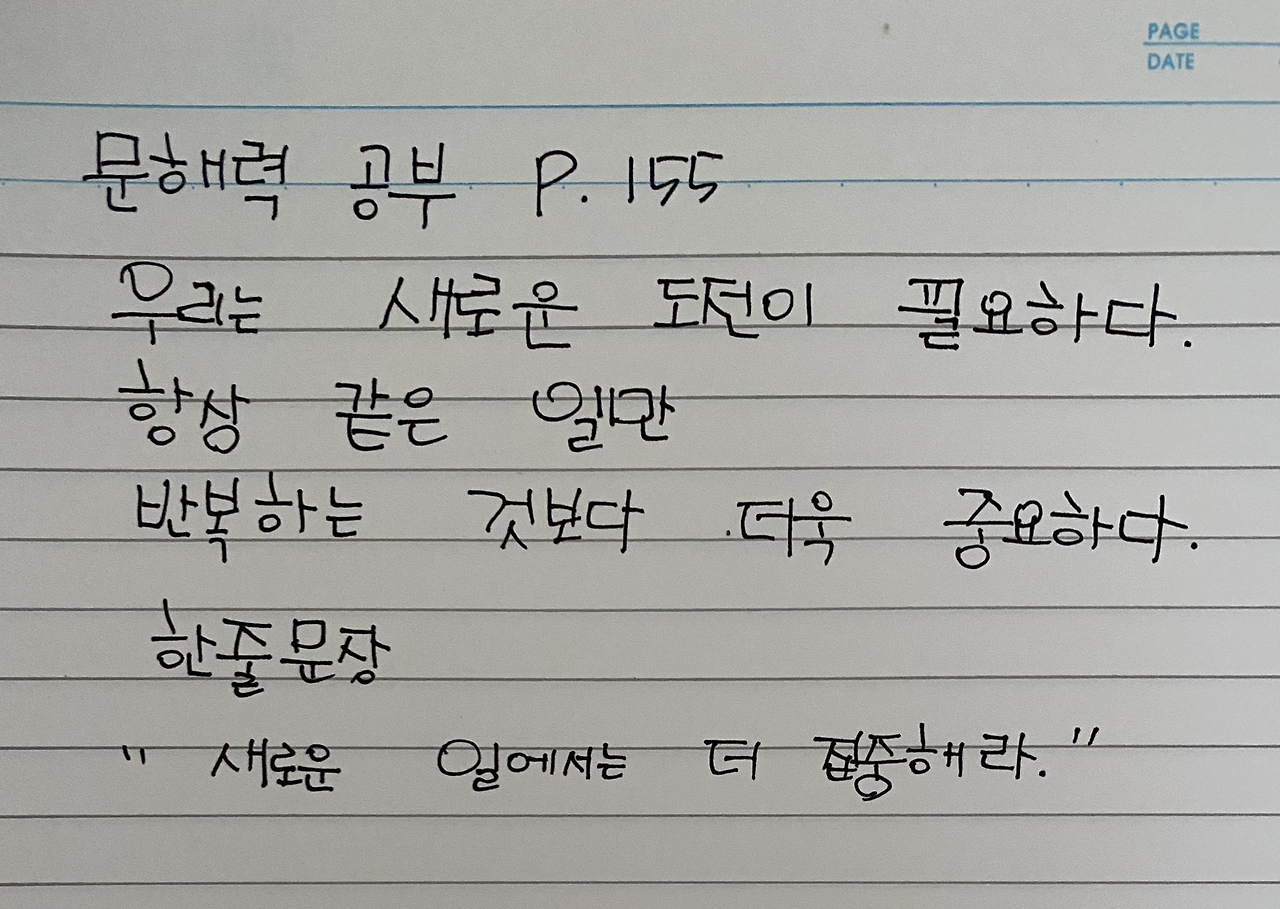 PAGE
DATE
문해력 공부 P. 155
우리는 새로운 도전이 필요하다.
항상 같은 일만
반복하는 것보다 더욱 중요하다.
한줄문장
" 새로운 일에서는 더 집중해라."